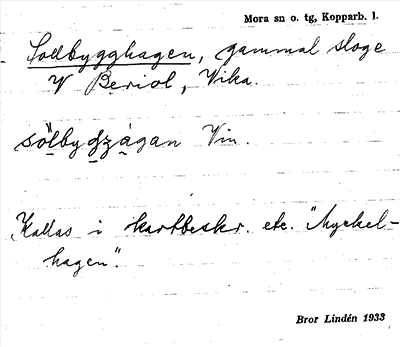 Mora sn o. tg, Kopparb. l.
Sollbygghagen, gammal sloge
V Beriol, Vika.
sölbydzágan Vin.
Kallas i kartbeskr. etc. "Myckel-
hagen".
Bror Lindén 1933